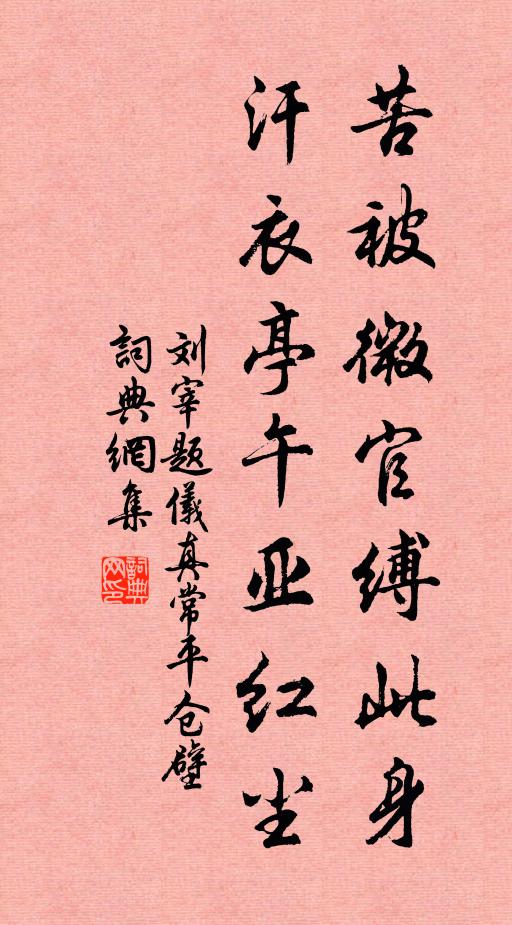 苦被微官缚此身
汗衣亭午亚红尘
刘宰题儀真常平仓壁
詞典網集
詞典网印